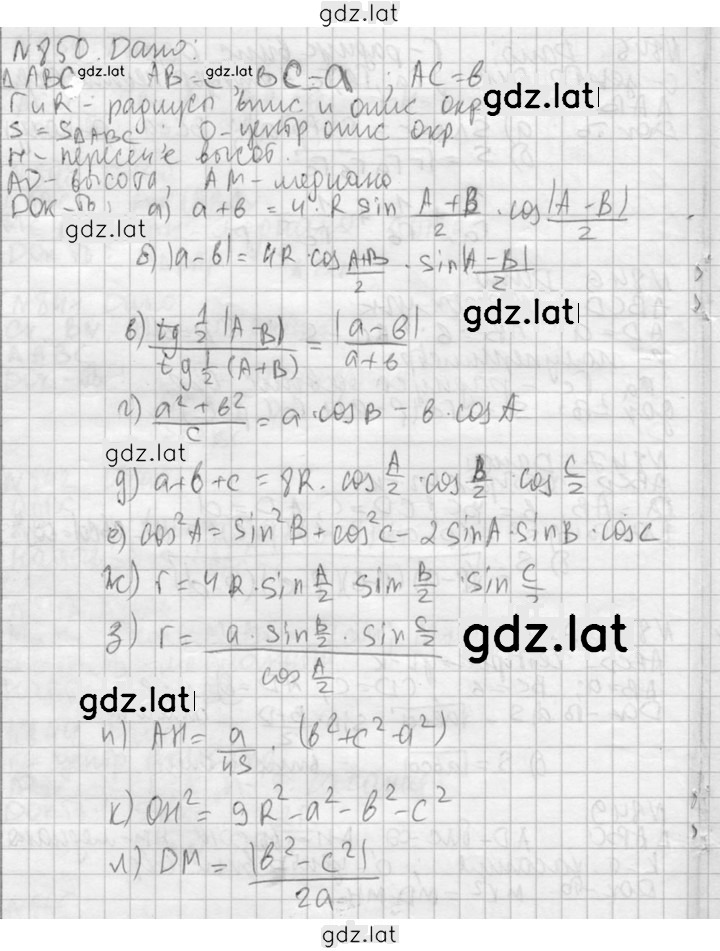 gdz.lat
N850. Дано:
ΔABC gdz.lat AB=C, BC=a; AC=в
r и R - радиусы впис и опис окр gdz.lat
S = S_ΔABC O-центр опис окр
H - пересеч-е высот.
AD-высота, AM-медиана
Док-ть: а) a+в = 4·R sin (A+B)/2 · cos |A-B|/2
gdz.lat
б) |a-в| = 4R·cos (A+B)/2 · sin |A-B|/2
в) tg 1/2 |A-B| / tg 1/2 (A+B) = |a-в| / a+в
г) (a²+в²)/c = a·cosB - в·cosA
gdz.lat
д) a+в+c = 8R·cos A/2 · cos B/2 · cos C/2
е) cos²A = sin²B + cos²C - 2 sinA·sinB·cosC
ж) r = 4R·sin A/2 · sin B/2 · sin C/2
з) r = (a·sin B/2 · sin C/2) / cos A/2 gdz.lat
gdz.lat
и) AH = a/4S · (в²+c²-a²)
к) OH² = 9R²-a²-в²-c²
л) DM = |в²-c²| / 2a
gdz.lat